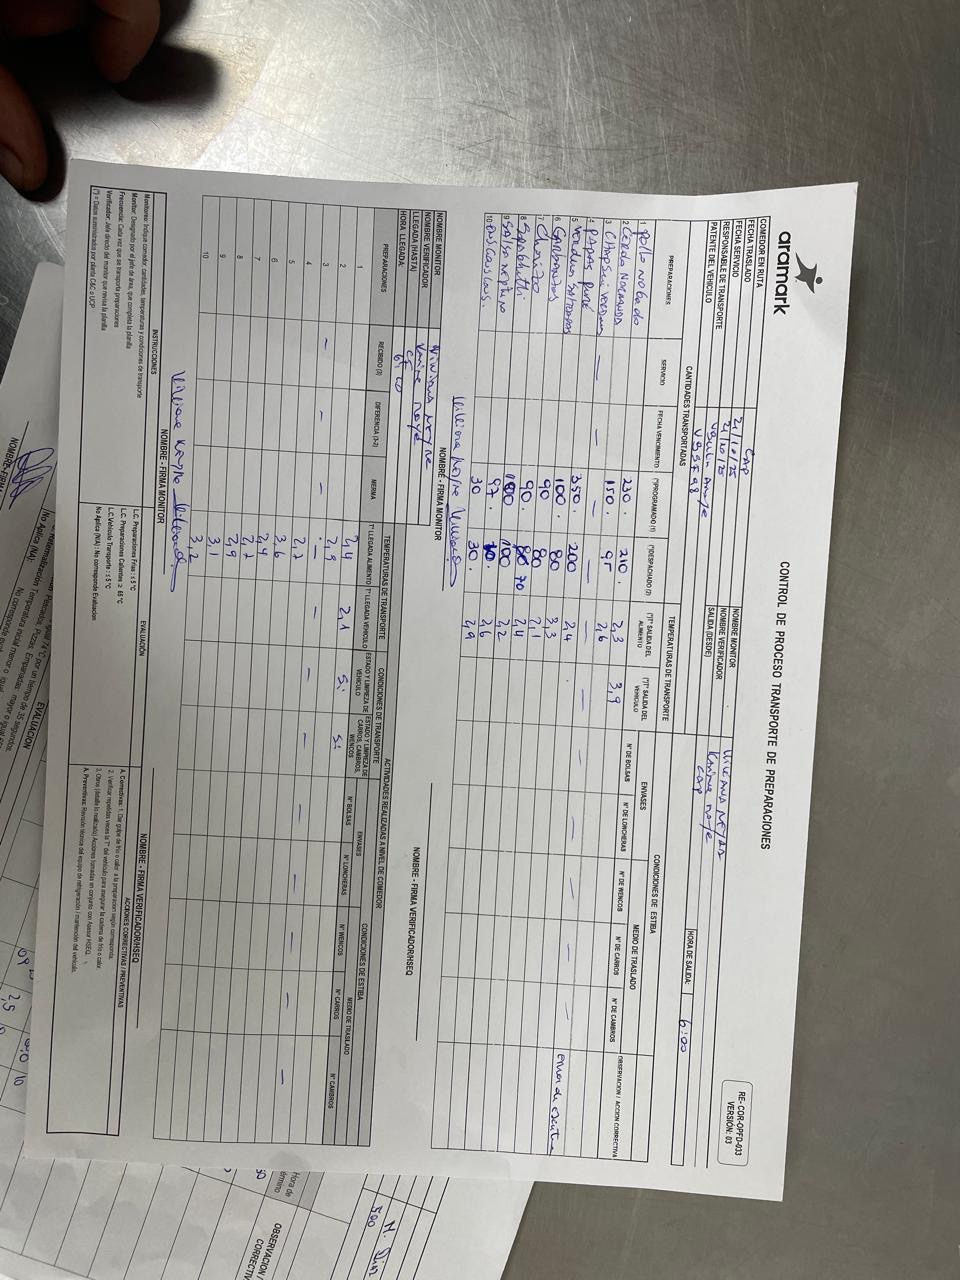 aramark
CONTROL DE PROCESO TRANSPORTE DE PREPARACIONES
RE- COR-OPFD-033
VERSIÓN: 03
COMEDOR EN RUTA CAP
FECHA TRASLADO 21/10/25
FECHA SERVICIO 21/10/25
RESPONSABLE DE TRANSPORTE
PATENTE DEL VEHICULO
NOMBRE MONITOR
NOMBRE VERIFICADOR
SALIDA (DESDE) CAP
HORA DE SALIDA: 6:00
CANTIDADES TRANSPORTADAS TEMPERATURAS DE TRANSPORTE CONDICIONES DE ESTIBA
ENVASES MEDIO DE TRASLADO
PREPARACIONES SERVICIO FECHA VENCIMIENTO (*)PROGRAMADO (1) (*)DESPACHADO (2) (*)T° SALIDA DEL ALIMENTO (*)T° SALIDA DEL VEHICULO N° DE BOLSAS N° DE LONCHERAS N° DE WENCOS N° DE CARROS N° DE CAMBROS OBSERVACION / ACCION CORRECTIVA
1 pollo 230. 210. 2,3 3,9
2 Cerdo NORMANDA 150. 95 2,6
3 CHAPSUI VERDURA — — — — — — — — — — —
4 PAPAS puré 350. 200 2,4
5 Verduras SALTEADAS 100. 80 3,3
6 GARBANZOS 90 80 2,1
7 Chorizo 90. 70 2,4
8 Spaghutti 100 100 2,2
9 SALSA 97. 2,6
10 CUS COUS COUS. 30 30. 2,9
NOMBRE - FIRMA MONITOR
NOMBRE - FIRMA VERIFICADOR/HSEQ
NOMBRE MONITOR
NOMBRE VERIFICADOR
LLEGADA (HASTA)
HORA LLEGADA:
ACTIVIDADES REALIZADAS A NIVEL DE COMEDOR
TEMPERATURAS DE TRANSPORTE CONDICIONES DE TRANSPORTE CONDICIONES DE ESTIBA
ENVASES MEDIO DE TRASLADO
PREPARACIONES RECIBIDO (3) DIFERENCIA (3-2) MERMA T° LLEGADA ALIMENTO T° LLEGADA VEHICULO ESTADO Y LIMPIEZA DE VEHICULO ESTADO Y LIMPIEZA DE CARROS, CAMBROS, WENCOS N° BOLSAS N° LONCHERAS N° WENCOS N° CARROS N° CAMBROS
1 2,4 2,1 Si Si
2 2,9
3 — — — — — — — — — — — —
4 2,7
5 3,6
6 2,4
7 2,7
8 2,9
9 3,1
10 3,2
NOMBRE - FIRMA MONITOR
NOMBRE - FIRMA VERIFICADOR/HSEQ
INSTRUCCIONES EVALUACIÓN ACCIONES CORRECTIVAS / PREVENTIVAS
Monitoreo: Indique comedor, cantidades, temperaturas y condiciones de transporte
Monitor: Designado por el jefe de área, que completa la planilla
Frecuencia: Cada vez que se transporta preparaciones
Verificador: Jefe directo del monitor que revisa la planilla
(*) = Datos suministrados por planta C&C o UCP
L.C. Preparaciones Frías : ≤ 5 °C
L.C. Preparaciones Calientes ≥ 65 °C
L.C.Vehículo Transporte : ≤ 5 °C
No Aplica (N/A) : No corresponde Evaluacion
A. Correctivas: 1. Dar golpe de frío o calor a la preparación según corresponda.
2. Verificar repetidas veces la T° del vehículo para asegurar la cadena de frío o calor.
3. Otros (detalle lo realizado) Acciones tomadas en conjunto con Asesor HSEQ.
A. Preventivas: Revisión técnica del equipo de refrigeración / mantención del vehículo.
EVALUACION
(No Aplica (N/A):
OBSERVACION /
CORRECTIV
Hora de
500